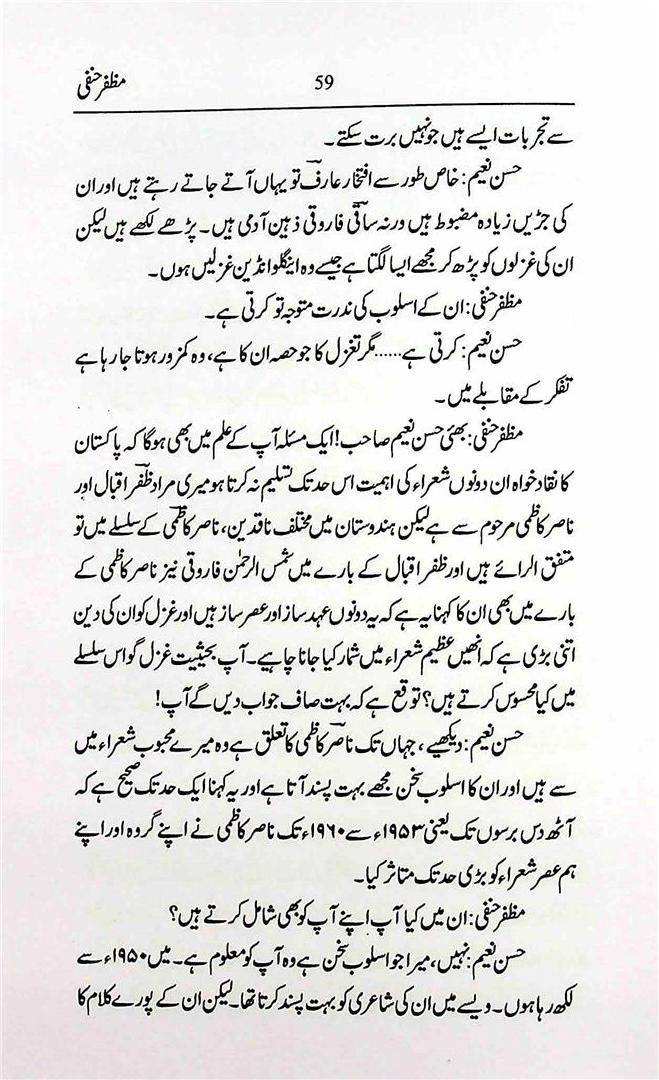 مظفر حنفی 59
سے تجربات ایسے ہیں جو نہیں برت سکتے۔
حسن نعیم: خاص طور سے افتخار عارف تو یہاں آتے جاتے رہتے ہیں اور ان
کی جڑیں زیادہ مضبوط ہیں ورنہ ساقی فاروقی ذہین آدمی ہیں۔ پڑھے لکھے ہیں لیکن
ان کی غزلوں کو پڑھ کر مجھے ایسا لگتا ہے جیسے وہ اینگلو انڈین غزلیں ہوں۔
مظفر حنفی: ان کے اسلوب کی ندرت متوجہ تو کرتی ہے۔
حسن نعیم: کرتی ہے...... مگر تغزل کا جو حصہ ان کا ہے، وہ کمزور ہوتا جا رہا ہے
تفکر کے مقابلے میں۔
مظفر حنفی: بھئی حسن نعیم صاحب! ایک مسئلہ آپ کے علم میں بھی ہوگا کہ پاکستان
کا نقاد خواہ ان دونوں شعراء کی اہمیت اس حد تک تسلیم نہ کرتا ہو میری مراد ظفر اقبال اور
ناصر کاظمی مرحوم سے ہے لیکن ہندوستان میں مختلف ناقدین، ناصر کاظمی کے سلسلے میں تو
متفق الرائے ہیں اور ظفر اقبال کے بارے میں شمس الرحمٰن فاروقی نیز ناصر کاظمی کے
بارے میں بھی ان کا کہنا یہ ہے کہ یہ دونوں عہد ساز اور عصر ساز ہیں اور غزل کو ان کی دین
اتنی بڑی ہے کہ انھیں عظیم شعراء میں شمار کیا جانا چاہیے۔ آپ بحیثیت غزل گو اس سلسلے
میں کیا محسوس کرتے ہیں؟ توقع ہے کہ بہت صاف جواب دیں گے آپ!
حسن نعیم: دیکھیے، جہاں تک ناصر کاظمی کا تعلق ہے وہ میرے محبوب شعراء میں
سے ہیں اور ان کا اسلوب سخن مجھے بہت پسند آتا ہے اور یہ کہنا ایک حد تک صحیح ہے کہ
آٹھ دس برسوں تک یعنی ۱۹۵۳ء سے ۱۹۶۰ء تک ناصر کاظمی نے اپنے گروہ اور اپنے
ہم عصر شعراء کو بڑی حد تک متاثر کیا۔
مظفر حنفی: ان میں کیا آپ اپنے آپ کو بھی شامل کرتے ہیں؟
حسن نعیم: نہیں، میرا جو اسلوب سخن ہے وہ آپ کو معلوم ہے۔ میں ۱۹۵۰ء سے
لکھ رہا ہوں۔ ویسے میں ان کی شاعری کو بہت پسند کرتا تھا۔ لیکن ان کے پورے کلام کا